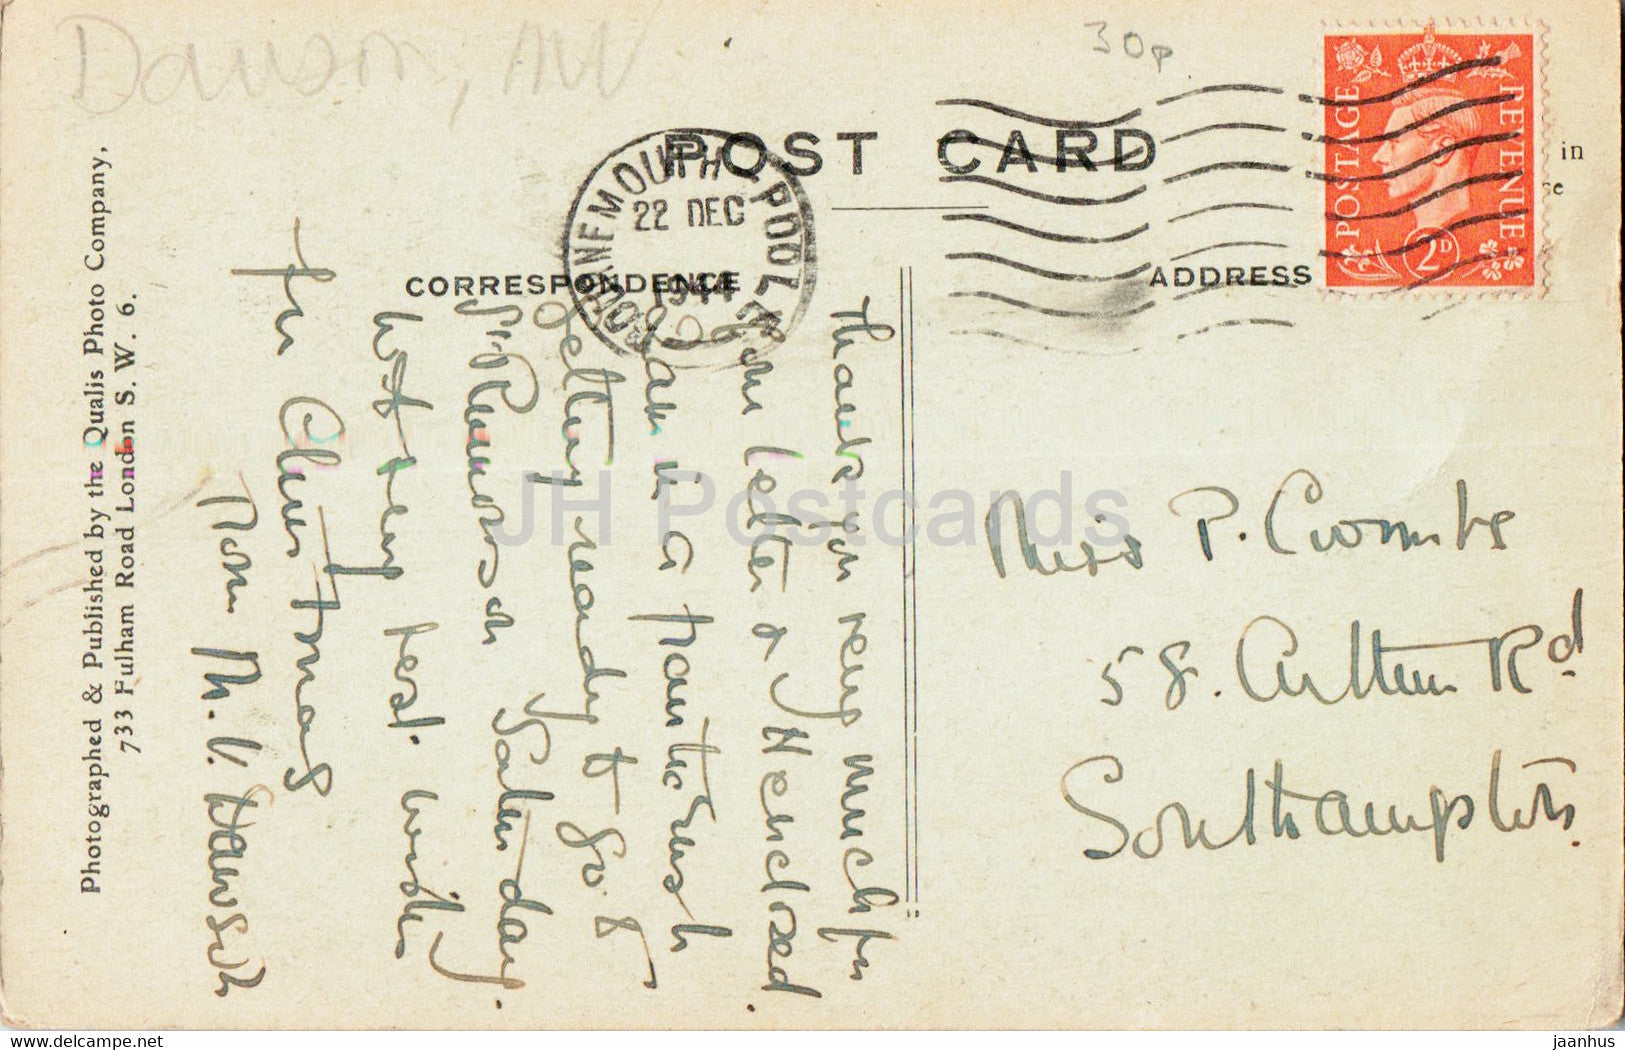 Dawson, MV
30p
POST CARD
BOURNEMOUTH - POOLE
22 DEC
1944
POSTAGE REVENUE
2D
in
se
CORRESPONDENCE
ADDRESS
Thanks you very much for
your letter & 
am in a frantic rush
getting ready to go to
St on Saturday.
With very best wishes
for Christmas
from M. V. Dawson
Miss P. Coombs
58. Arthur Rd
Southampton.
Photographed & Published by the Qualis Photo Company,
733 Fulham Road London S. W. 6.
JH Postcards
www.delcampe.net
jaanhus